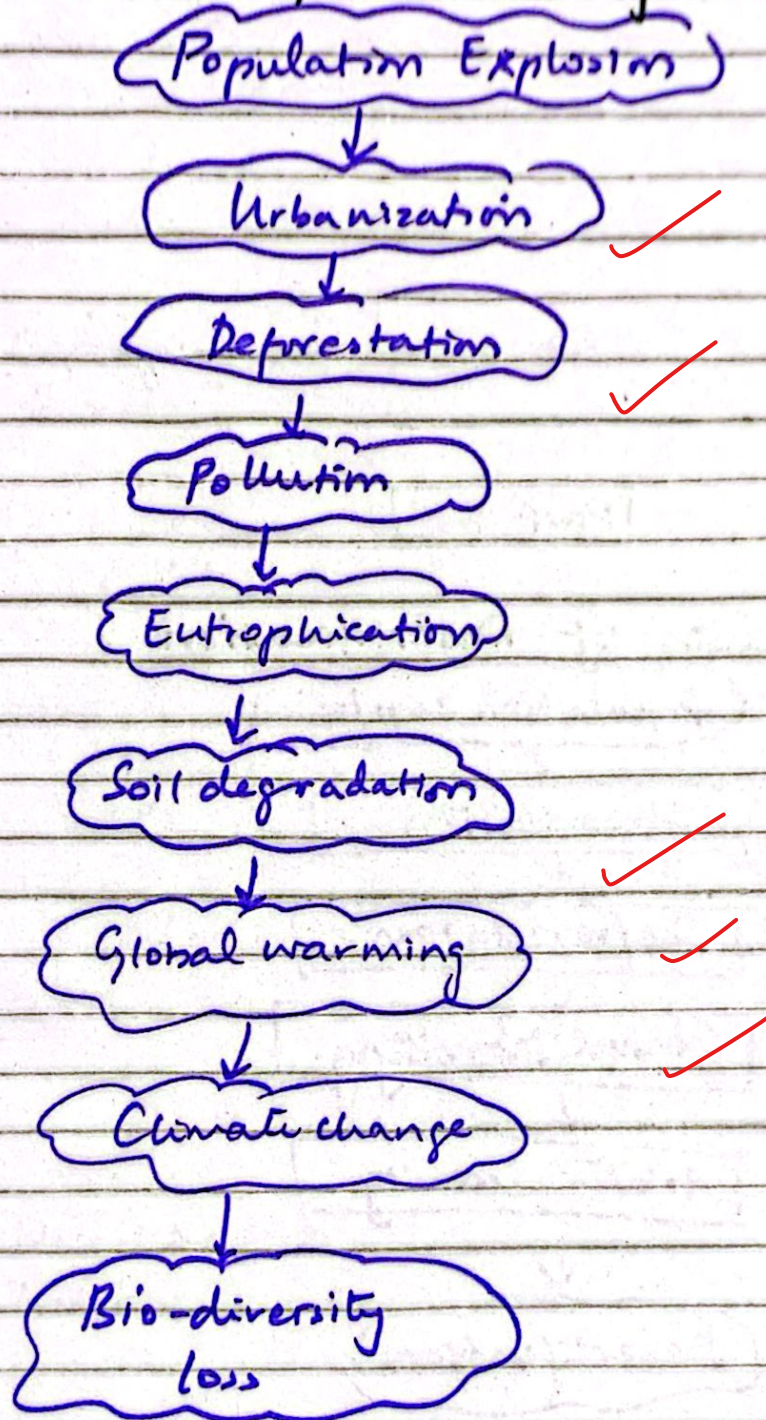 Population Explosion
Urbanization
Deforestation
Pollution
Eutrophication
Soil degradation
Global warming
Climate change
Bio-diversity
loss